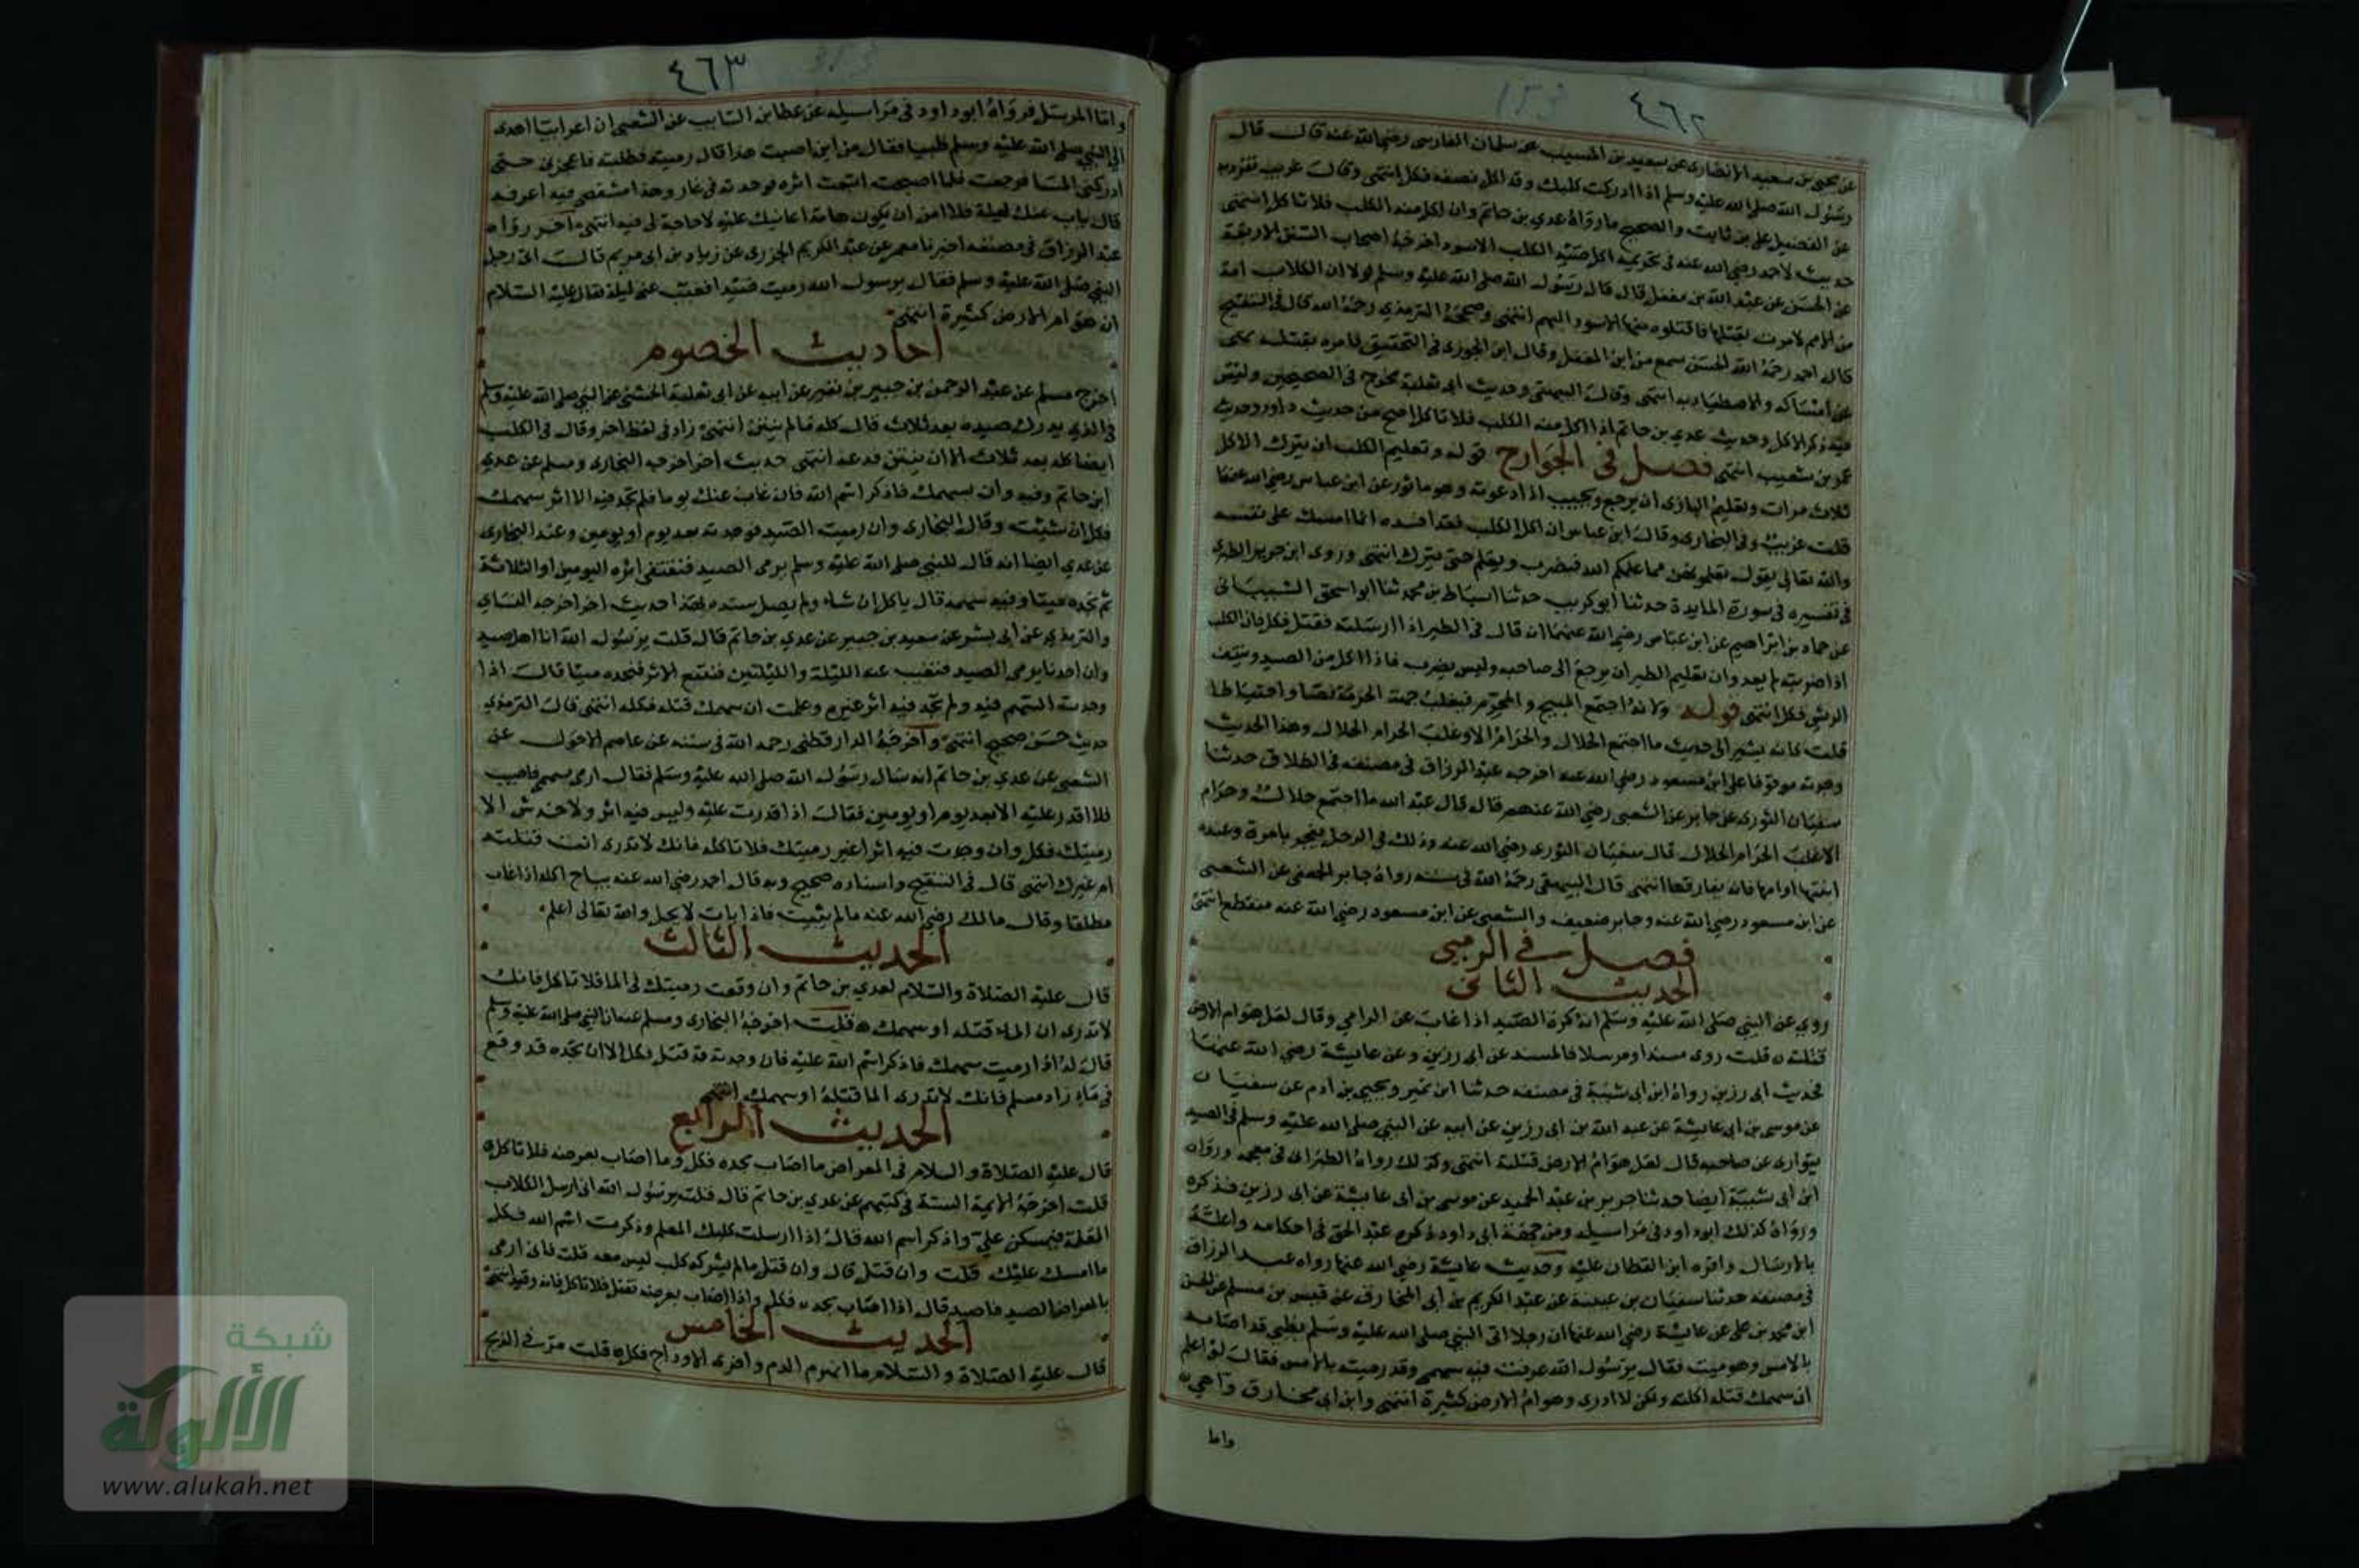 ٤٦٢
عن يحيى بن سعيد الانصارى عن سعيد بن المسيب عن سلمان الفارسى رضى الله عنه قال قال
رسول الله صلى الله عليه وسلم اذا ادركت كلبك وقد اكل نصفه فكل انتهى وقال غريب تفرد به
عن الفضيل على بن ثابت والصحيح ما رواه عدي بن حاتم وان اكل منه الكلب فلا تاكل انتهى
حديث لاحمد رضى الله عنه فى تحريم اكل صيد الكلب الاسود اخرجه اصحاب السنن الاربعة
عن الحسن عن عبد الله بن مغفل قال قال رسول الله صلى الله عليه وسلم لولا ان الكلاب امة
من الامم لامرت بقتلها فاقتلوا منها الاسود البهيم انتهى وصححه الترمذي رحمه الله قال فى التنقيح
قال احمد رحمه الله الحسن سمع من ابن المغفل وقال ابن الجوزى فى التحقيق فامره بقتله نهى
عن امساكه والاصطياد به انتهى وقال البيهقى وحديث ابى ثعلبة مخرج فى الصحيحين وليس
فيه ذكر الاكل وحديث عدي بن حاتم اذا اكل منه الكلب فلا تاكل اصح من حديث داود وحديث
عمرو بن شعيب انتهى فصل فى الجوارح قوله وتعليم الكلب ان يترك الاكل
ثلاث مرات وتعليم البازى ان يرجع ويجيب اذا دعوته وهو ماثور عن ابن عباس رضى الله عنهما
قلت غريب وفى البخارى وقال ابن عباس ان اكل الكلب فقد افسده انما امسك على نفسه
والله تعالى يقول تعلمونهن مما علمكم الله فيضرب ويعلم حتى يترك انتهى وروى ابن جرير الطبرى
فى تفسيره فى سورة المايدة حدثنا ابو كريب حدثنا اسباط بن محمد ثنا ابو اسحق الشيبانى
عن حماد بن ابراهيم عن ابن عباس رضى الله عنهما انه قال فى الطير اذا ارسلته فقتل فكل فان الكلب
اذا ضربته لم يعد وان تعليم الطير ان يرجع الى صاحبه وليس يضرب فاذا اكل من الصيد ونتف
الريش فكل انتهى قوله ولانه اجتمع المبيح والمحرم فيغلب جهة الحرمة نصا واحتياطا
قلت كانه يشير الى حديث ما اجتمع الحلال والحرام الا وغلب الحرام الحلال وهذا الحديث
وجدته موقوفا على ابن مسعود رضى الله عنه اخرجه عبد الرزاق فى مصنفه فى الطلاق حدثنا
سفيان الثورى عن جابر عن الشعبى رضى الله عنهم قال قال عبد الله ما اجتمع حلال وحرام
الا غلب الحرام الحلال قال سفيان الثورى رضى الله عنه وذلك فى الرجل يفجر بامرة وعنده
ابنتها او امها فانه يفارقها انتهى قال البيهقى رحمه الله فى سننه رواه جابر الجعفى عن الشعبى
عن ابن مسعود رضى الله عنه وجابر ضعيف والشعبى عن ابن مسعود رضى الله عنه منقطع انتهى
فصل فى الرمى
الحديث الثانى
روي عن النبى صلى الله عليه وسلم انه كره الصيد اذا غاب عن الرامى وقال لعل هوام الارض
قتلته قلت روى مسندا ومرسلا فالمسند عن ابى رزين وعن عايشة رضى الله عنهما
فحديث ابى رزين رواه ابن ابى شيبة فى مصنفه حدثنا ابن نمير ويحيى بن ادم عن سفيان
عن موسى بن ابى عايشة عن عبد الله بن ابى رزين عن ابيه عن النبى صلى الله عليه وسلم فى الصيد
يتوارى عن صاحبه قال لعل هوام الارض قتلته انتهى وكذلك رواه الطبرانى فى معجمه ورواه
ابن ابى شيبة ايضا حدثنا جرير بن عبد الحميد عن موسى بن ابى عايشة عن ابى رزين فذكره
ورواه كذلك ابو داود فى مراسيله ومن جهة ابى داود ذكره عبد الحق فى احكامه واعله
بالارسال واقره ابن القطان عليه وحديث عايشة رضى الله عنها رواه عبد الرزاق
فى مصنفه حدثنا سفيان بن عيينة عن عبد الكريم بن ابى المخارق عن قيس بن مسلم عن الحسن
ابن محمد بن على عن عايشة رضى الله عنها ان رجلا اتى النبى صلى الله عليه وسلم بظبى قد اصابه
بالامس وهو ميت فقال يرسول الله عرفت فيه سهمى وقد رميته بالامس فقال لو اعلم
ان سهمك قتله اكلته ولكن لا ادرى وهوام الارض كثيرة انتهى وابن ابى مخارق واهي
واما
٤٦٣
واما المرسل فرواه ابو داود فى مراسيله عن عطا بن السايب عن الشعبى ان اعرابيا اهدى
الى النبى صلى الله عليه وسلم ظبيا فقال من اين اصبت هذا قال رميته فطلبته فاعجزنى حتى
ادركنى المسا فرجعت فلما اصبحت اتبعت اثره فوجدته فى غار وهذا مشقصى فيه اعرفه
قال بات عنك ليلة فلا امن ان يكون هامة اعانتك عليه لا حاجة لى فيه انتهى اخر رواه
عبد الرزاق فى مصنفه اخبرنا معمر عن عبد الكريم الجزرى عن زياد بن ابى مريم قال اتى رجل
النبى صلى الله عليه وسلم فقال يرسول الله رميت صيدا فتغيب عنى ليلة فقال عليه السلام
ان هوام الارض كثيرة انتهى
احاديث الخصوم
اخرج مسلم عن عبد الرحمن بن جبير بن نفير عن ابيه عن ابى ثعلبة الخشنى عن النبى صلى الله عليه وسلم
فى الذى يدرك صيده بعد ثلاث قال كله ما لم ينتن انتهى زاد فى لفظ اخر وقال فى الكلب
ايضا كله بعد ثلاث الا ان ينتن فدعه انتهى حديث اخر اخرجه البخارى ومسلم عن عدي
ابن حاتم وفيه وان بسهمك فاذكر اسم الله فان غاب عنك يوما فلم تجد فيه الا اثر سهمك
فكل ان شئت وقال البخارى وان رميت الصيد فوجدته بعد يوم او يومين وعند البخارى
عن عدي ايضا انه قال للنبى صلى الله عليه وسلم يرمى الصيد فنقتفى اثره اليومين او الثلاثة
ثم نجده ميتا وفيه سهمه قال ياكل ان شاء ولم يصل سنده بهذا حديث اخر اخرجه النساى
والترمذى عن ابى بشر عن سعيد بن جبير عن عدي بن حاتم قال قلت يرسول الله انا اهل صيد
وان احدنا يرمى الصيد فتغيب عنه الليلة والليلتين فنتبع الاثر فنجده ميتا قال اذا
وجدت السهم فيه ولم تجد فيه اثر غيره وعلمت ان سهمك قتله فكله انتهى قال الترمذى
حديث حسن صحيح انتهى واخرجه الدارقطنى رحمه الله فى سننه عن عاصم الاحول عن
الشعبى عن عدي بن حاتم انه سال رسول الله صلى الله عليه وسلم فقال ارمى بسهمى فاصيب
فلا اقدر عليه الا بعد يوم او يومين فقال اذا قدرت عليه وليس فيه اثر ولا خدش الا
رميتك فكل وان وجدت فيه اثرا غير رميتك فلا تاكله فانك لا تدرى انت قتلته
ام غيرك انتهى قال فى التنقيح واسناده صحيح وبه قال احمد رضى الله عنه يباح اكله اذا غاب
مطلقا وقال مالك رضى الله عنه ما لم يبت فاذا بات لا يحل والله تعالى اعلم
الحديث الثالث
قال عليه الصلاة والسلام لعدي بن حاتم وان وقعت رميتك فى الما فلا تاكل فانك
لا تدرى ان الماء قتله او سهمك قلت اخرجه البخارى ومسلم عنه ان النبى صلى الله عليه وسلم
قال له اذا رميت سهمك فاذكر اسم الله عليه فان وجدته قد قتل فكل الا ان تجده قد وقع
فى ماء زاد مسلم فانك لا تدرى الما قتله او سهمك انتهى
الحديث الرابع
قال عليه الصلاة والسلام فى المعراض ما اصاب بحده فكل وما اصاب بعرضه فلا تاكل
قلت اخرجه الايمة الستة فى كتبهم عن عدي بن حاتم قال قلت يرسول الله انى ارسل الكلاب
المعلمة فيمسكن علي واذكر اسم الله قال اذا ارسلت كلبك المعلم وذكرت اسم الله فكل
ما امسك عليك قلت وان قتل قال وان قتل ما لم يشركه كلب ليس معه قلت فانى ارمى
بالمعراض الصيد فاصيد قال اذا اصاب بحده فكل واذا اصاب بعرضه فقتل فلا تاكل فانه وقيذ انتهى
الحديث الخامس
قال عليه الصلاة والسلام ما انهر الدم وافرى الاوداج فكل قلت مر فى الذبح
شبكة
الألوكة
www.alukah.net